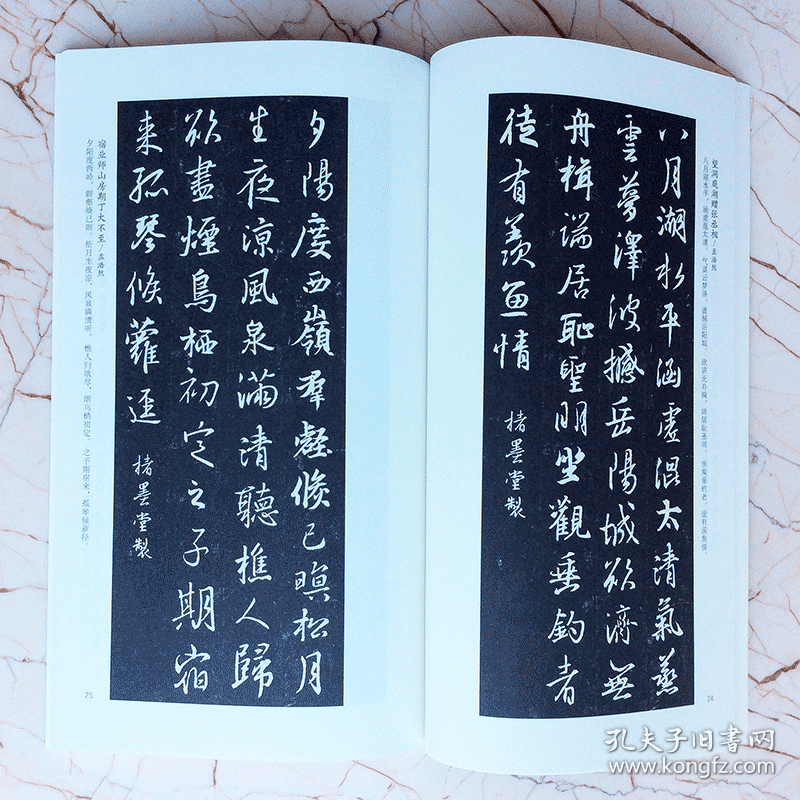 望洞庭湖赠张丞相/孟浩然
八月湖水平，涵虚混太清。气蒸云梦泽，波撼岳阳城。欲济无舟楫，端居耻圣明。坐观垂钓者，徒有羡鱼情。
八月湖水平涵虛混太清氣蒸
雲夢澤波撼岳陽城欲濟無
舟楫端居恥聖明坐觀垂釣者
徒有羨魚情
楮墨堂製
24
宿业师山房期丁大不至/孟浩然
夕阳度西岭，群壑倏已暝。松月生夜凉，风泉满清听。樵人归欲尽，烟鸟栖初定。之子期宿来，孤琴候萝径。
夕陽度西嶺群壑倏已暝松月
生夜涼風泉滿清聽樵人歸
欲盡煙鳥栖初定之子期宿
來孤琴候蘿逕
楮墨堂製
25
孔夫子旧书网
www.kongfz.com